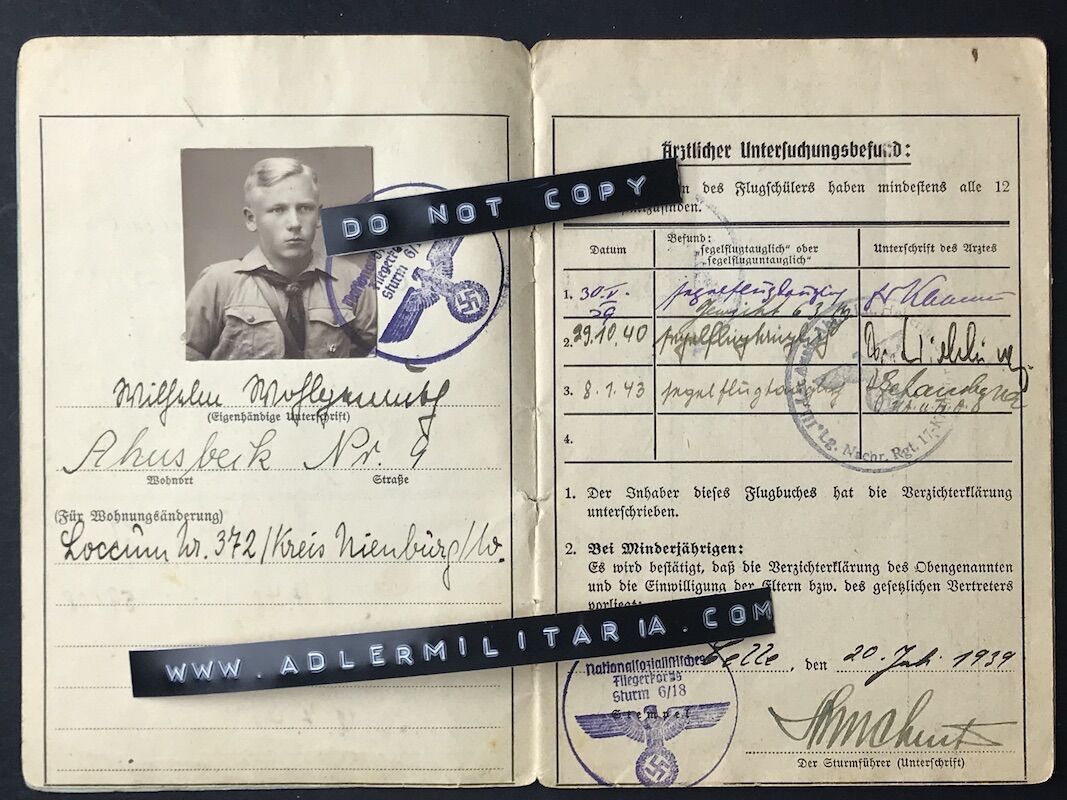 DO NOT COPY
Sturm 6/1
Wilhelm Wohlgemuth
(Eigenhändige Unterschrift)
Ahnsbeck Nr. 9
Wohnort Straße
(Für Wohnungsänderung)
Loccum Nr. 372/Kreis Nienburg/W.
WWW.ADLERMILITARIA.COM
Ärztlicher Untersuchungsbefund:
des Flugschülers haben mindestens alle 12
Datum
Befund:
„segelflugtauglich“ oder
„segelfluguntauglich“
Unterschrift des Arztes
1. 30.
segelflugtauglich
Gewicht 63 kg
2. 29.10.40 segelflugtauglich
3. 8.1.43 segelflugtauglich
4.
Lg. Nachr. Rgt. 17
1. Der Inhaber dieses Flugbuches hat die Verzichterklärung
unterschrieben.
2. Bei Minderjährigen:
Es wird bestätigt, daß die Verzichterklärung des Obengenannten
und die Einwilligung der Eltern bzw. des gesetzlichen Vertreters
vorliegt:
Celle, den 20. Juli 1939
Nationalsozialistisches
Fliegerkorps
Sturm 6/18
Stempel
Der Sturmführer (Unterschrift)